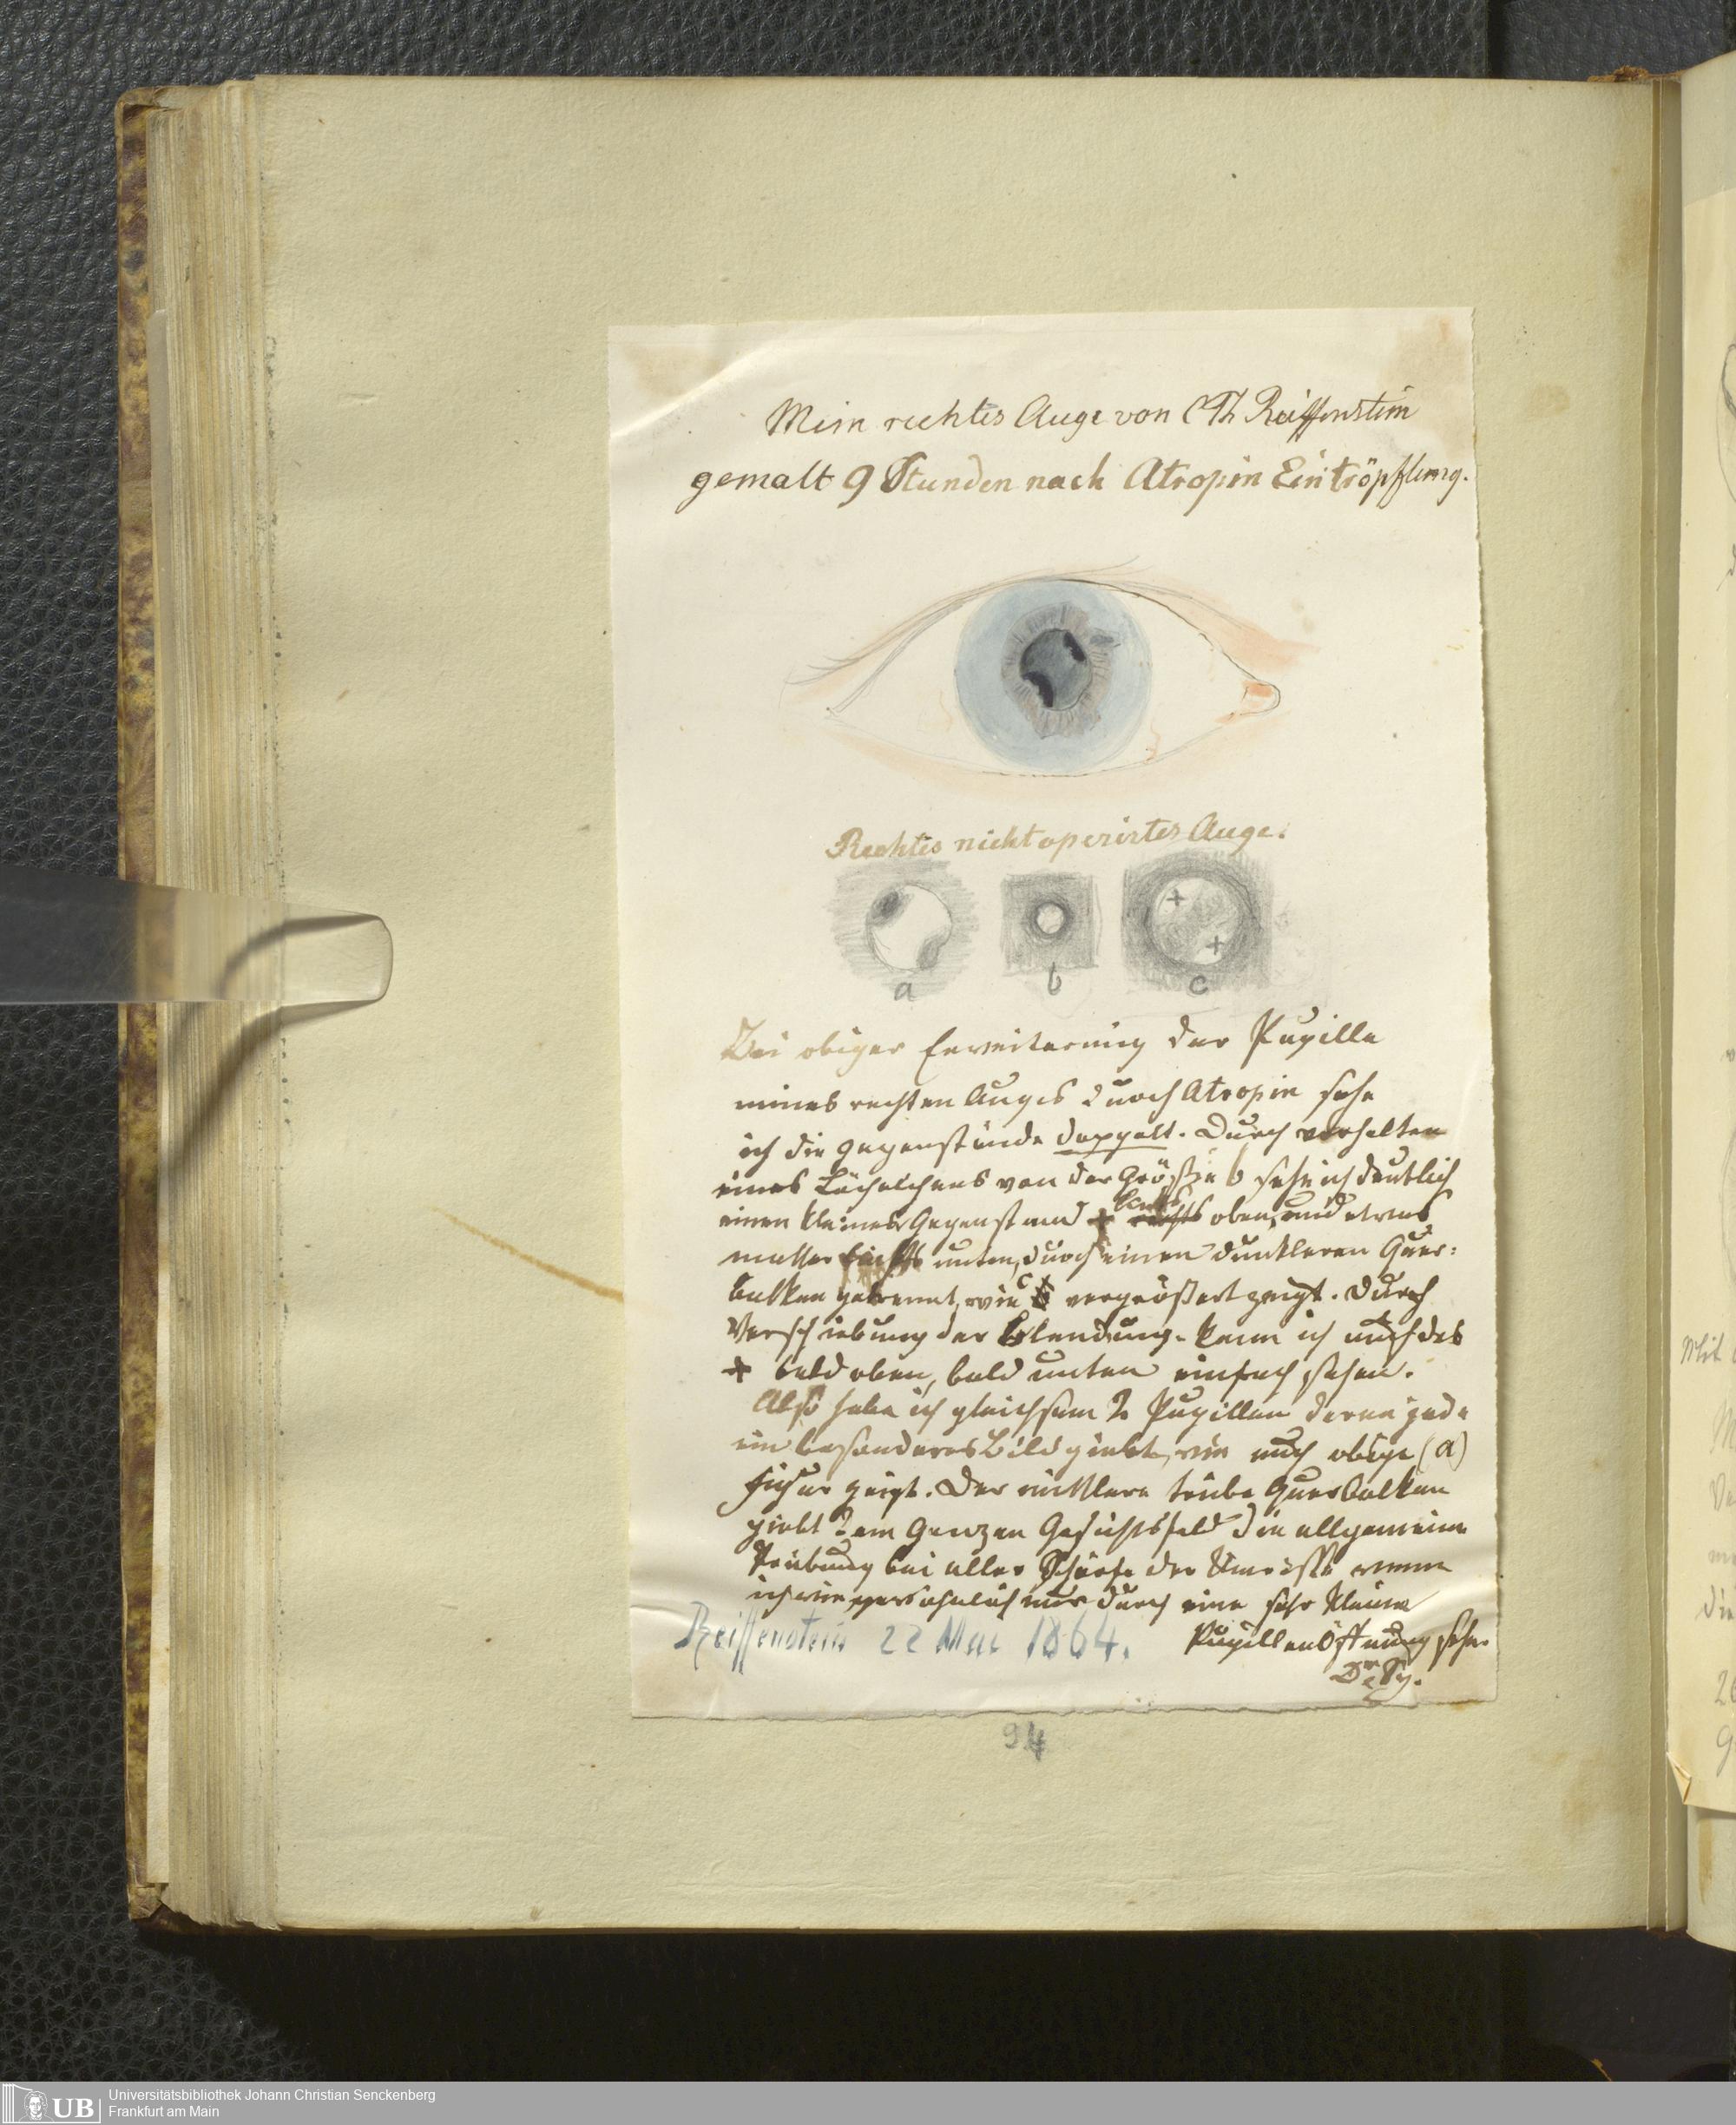 Mein rechtes Auge von CTh Reiffenstein
gemalt 9 Stunden nach Atropin Eintröpflung.
Rechtes nicht operirtes Auge.
a b c
Bei obiger Erweiterung der Pupille
meines rechten Auges durch Atropin sehe
ich die Gegenstände doppelt. Durch vorhalten
eines Löchelchens von der Größe b sehe ich deutlich
links
einen kleinen Gegenstand + rechts oben, und etwas
matter rechts unten, durch einen dunkleren Quer=
balken getrennt, wie c vergrößert zeigt. Durch
Verschiebung der Blendung kann ich auch das
+ bald oben, bald unten einfach sehen.
Also habe ich gleichsam 2 Pupillen deren jede
ein besonderes Bild giebt, wie auch obige (a)
Figur zeigt. Der mittlere trübe Querbalken
giebt dem Ganzen Gesichtsfeld die allgemeine
Trübung bei aller Schärfe der Umrisse wenn
ich wie gewöhnlich nur durch eine sehr kleine
Pupillenöffnung sehe.
Reiffenstein 22 Mai 1864.
94
Mit
UB
Universitätsbibliothek Johann Christian Senckenberg
Frankfurt am Main